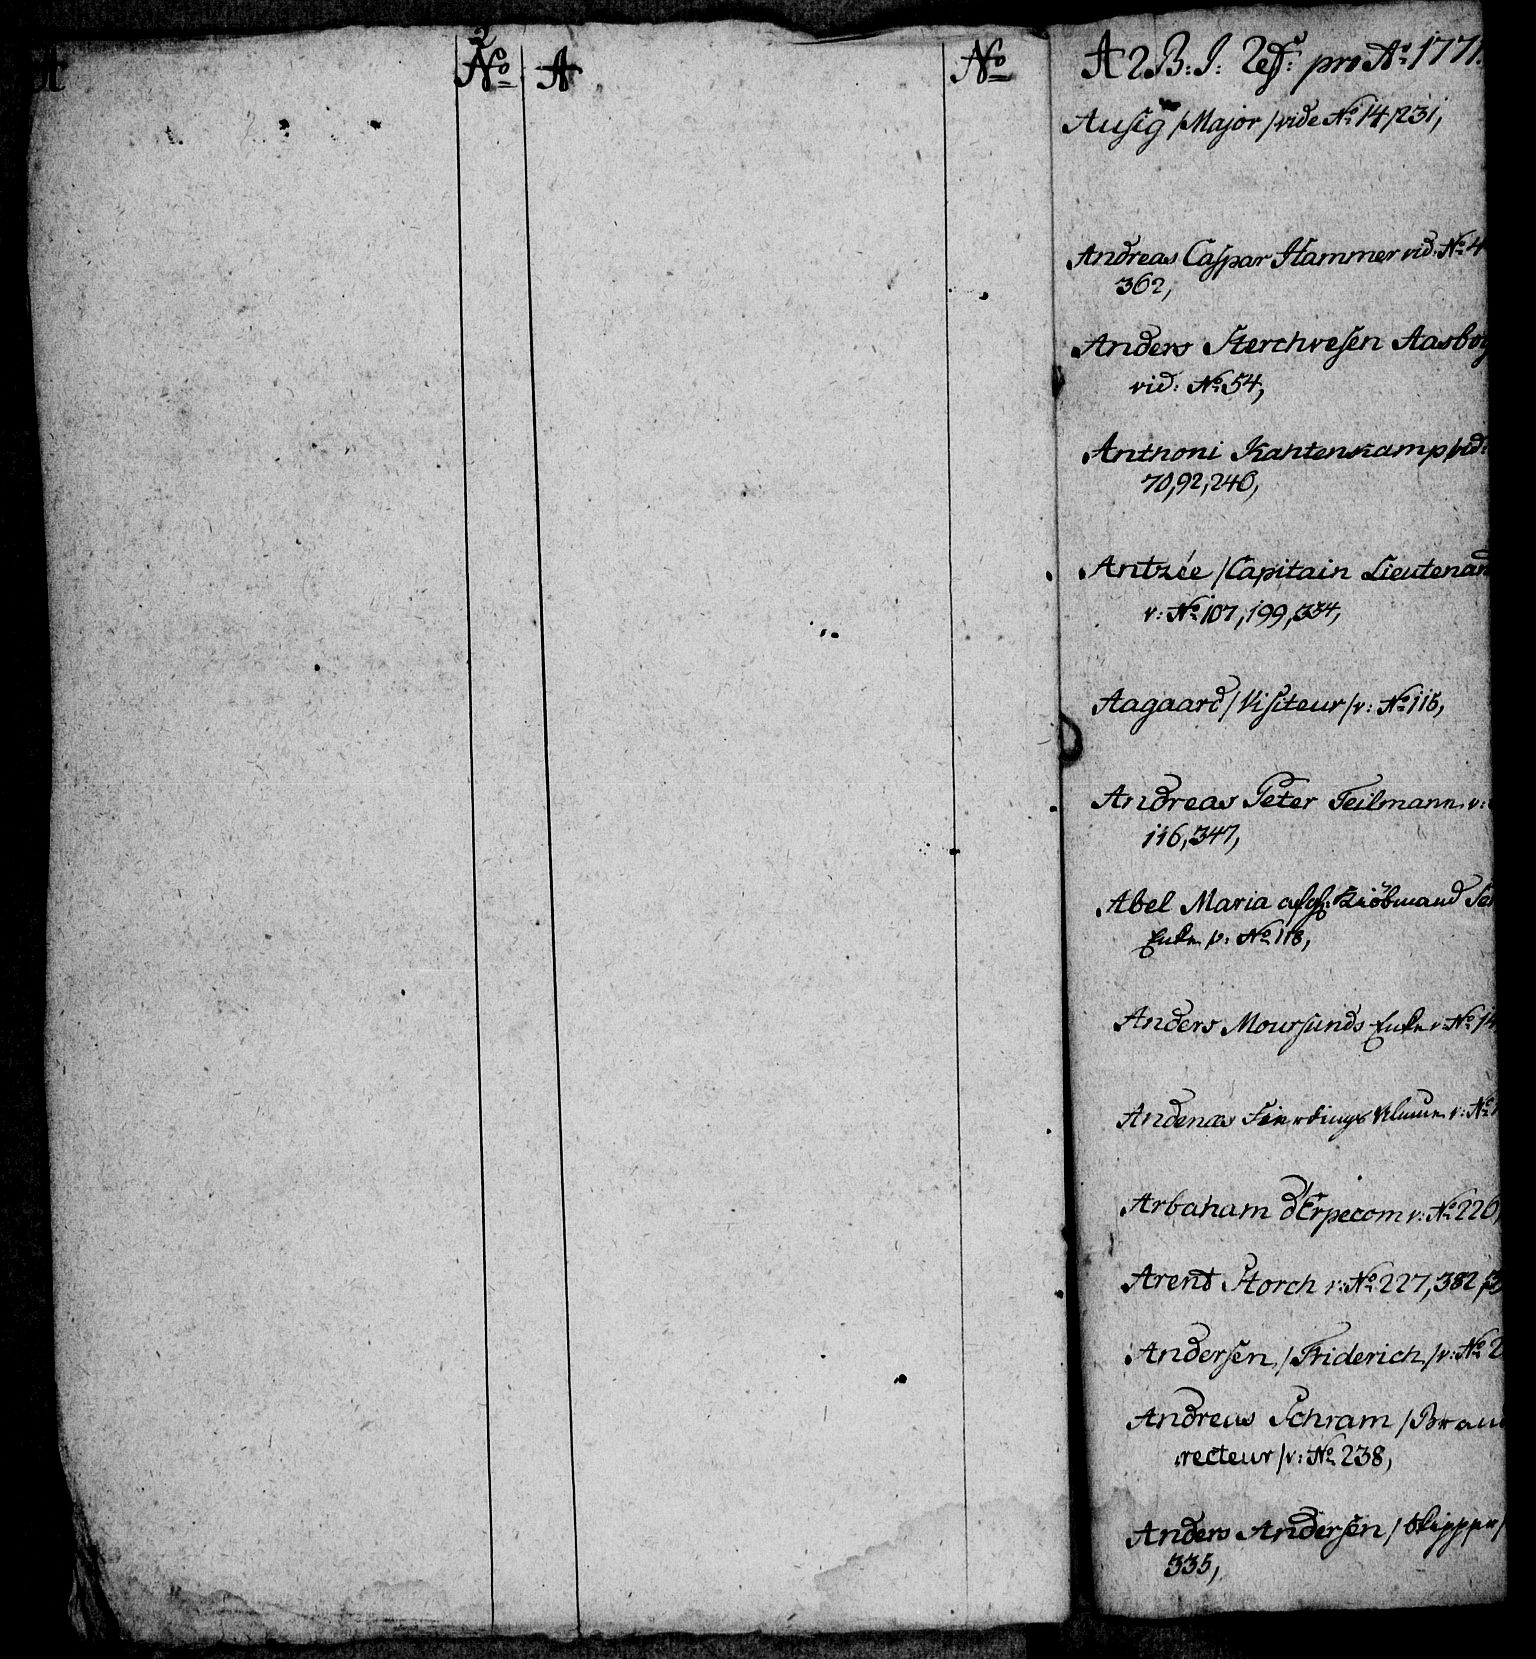 A
No
A
No
A 2 B: I: pro Ao 1771
Ausig /Major/ vide No 14, 231,
Andreas Caspar Hammer vid: No 4
362,
Anders Sterchresen
vid: No 54,
Anthoni Kahtenskamp vid:
70, 92, 246,
Antzée /Capitain Lieutenan
v: No 107, 199, 334,
Aagaard /Visiteur/ v: No 115,
Andreas Peter Teilmann v:
116, 347,
Abel Maria afg: Kiöbmand
Enke v: No 118,
Anders Moursunds Enke v: No 14
Andenæs Fierdings v: No
Arbaham d'Erpecom v: No 226,
Arent Storch v: No 227, 382, 3
Andersen, /Friderich/ v: No 2
Andreas Schram /Brand
recteur/ v: No 238,
Anders Andersen /Skipper/
335,